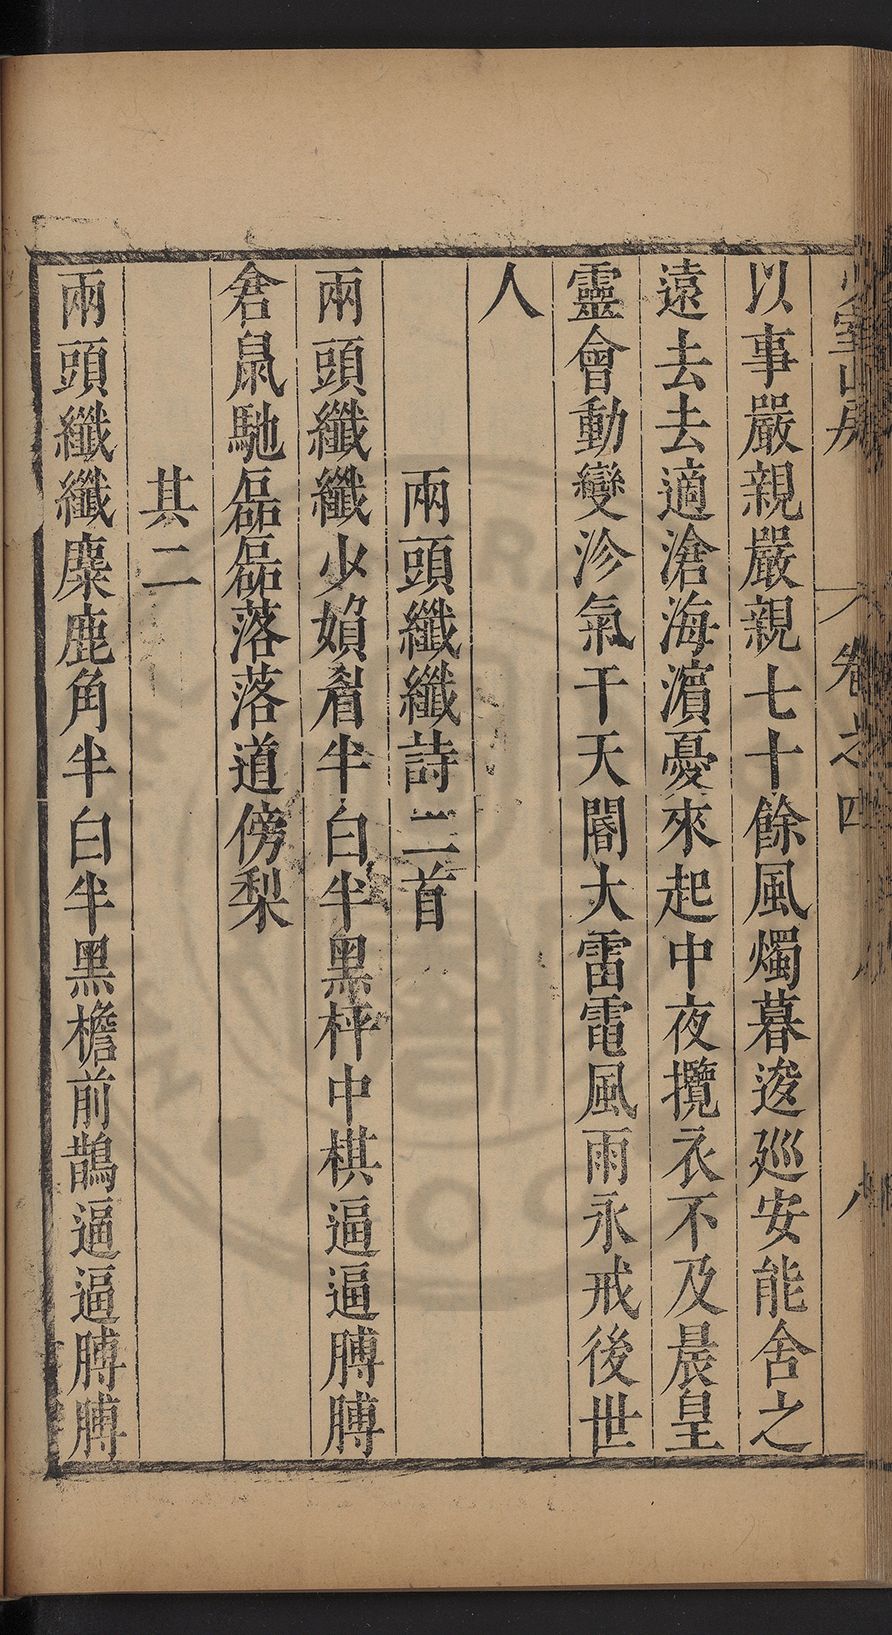 少室山房
卷之四
八
以事嚴親嚴親七十餘風燭暮逡廵安能舍之
遠去去適滄海濱憂來起中夜攬衣不及晨皇
靈會動變沴氣干天閽大雷電風雨永戒後世
人
兩頭纖纖詩二首
兩頭纖纖少媍眉半白半黑枰中棋逼逼膊膊
倉鼠馳磊磊落落道傍梨
其二
兩頭纖纖麋鹿角半白半黑檐前鵲逼逼膊膊